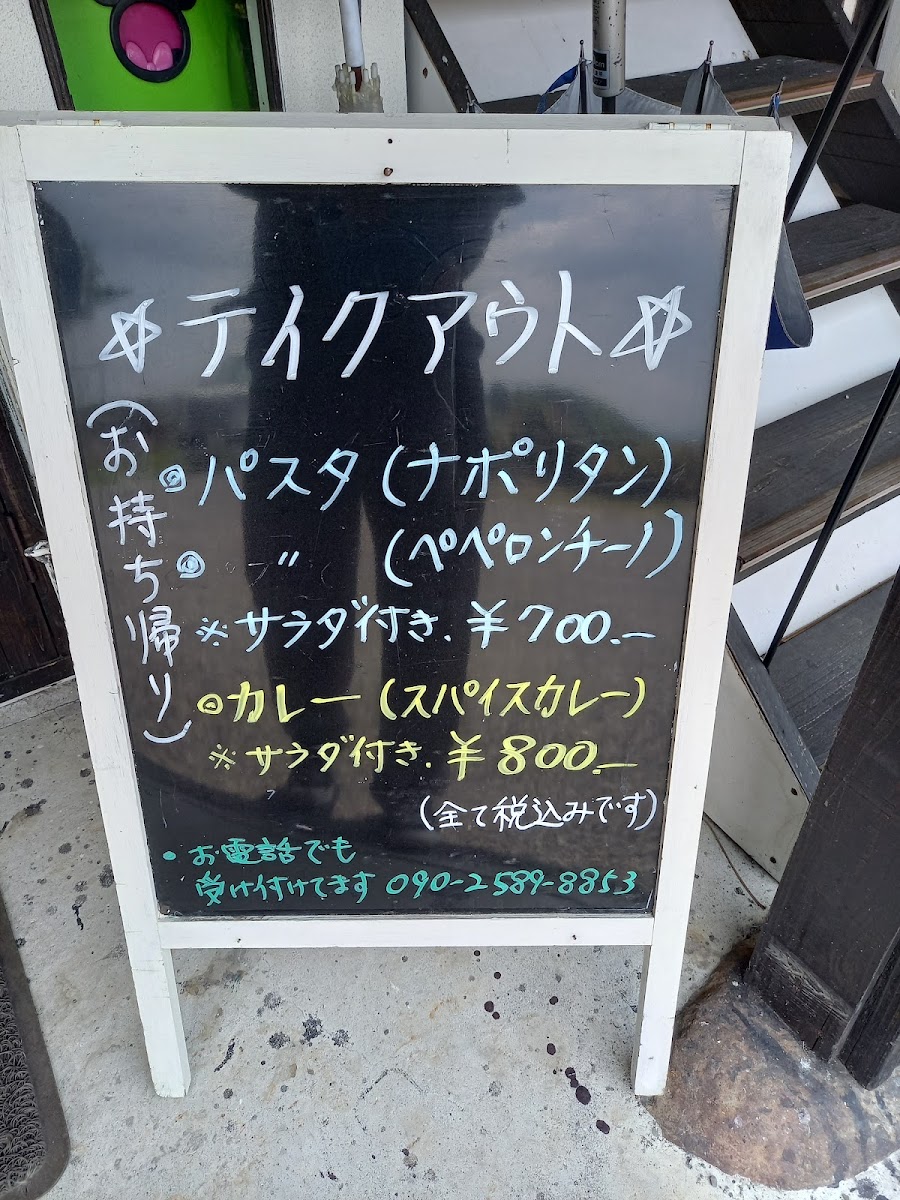 ☆テイクアウト☆
(お持ち帰り)
◎パスタ(ナポリタン)
◎ 〃 (ペペロンチーノ)
※サラダ付き.¥700.—
◎カレー(スパイスカレー)
※サラダ付き.¥800.—
(全て税込みです)
・お電話でも
受け付けてます 090-2589-8853